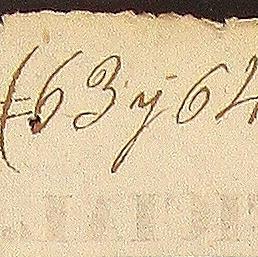 (=63 y 64